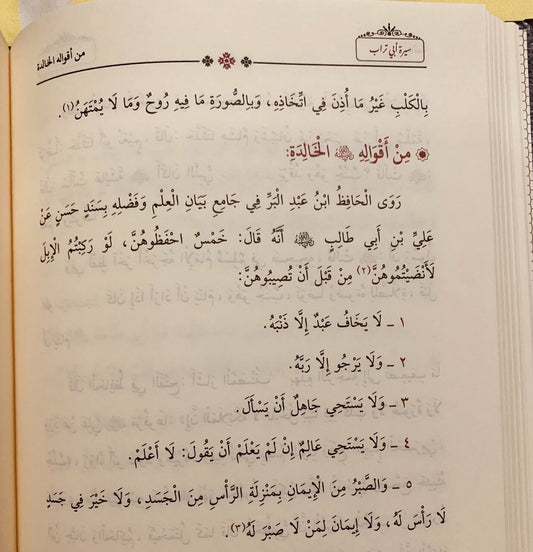 سيرة أبي تراب
من أقواله الخالدة
بِالْكَلْبِ غَيْرُ مَا أُذِنَ فِي اتِّخَاذِهِ، وَبِالصُّورَةِ مَا فِيهِ رُوحٌ وَمَا لَا يُمْتَهَنُ(١).
مِنْ أَقْوَالِهِ ﷺ الْخَالِدَةِ:
رَوَى الْحَافِظُ ابْنُ عَبْدِ الْبَرِّ فِي جَامِعِ بَيَانِ الْعِلْمِ وَفَضْلِهِ بِسَنَدٍ حَسَنٍ عَنْ
عَلِيِّ بْنِ أَبِي طَالِبٍ أَنَّهُ قَالَ: خَمْسٌ احْفَظُوهُنَّ، لَوْ رَكِبْتُمُ الْإِبِلَ
لَأَنْضَيْتُمُوهُنَّ(٢) مِنْ قَبْلِ أَنْ تُصِيبُوهُنَّ:
١ - لَا يَخَافُ عَبْدٌ إِلَّا ذَنْبَهُ.
٢ - وَلَا يَرْجُو إِلَّا رَبَّهُ.
٣ - وَلَا يَسْتَحِي جَاهِلٌ أَنْ يَسْأَلَ.
٤ - وَلَا يَسْتَحِي عَالِمٌ إِنْ لَمْ يَعْلَمْ أَنْ يَقُولَ: لَا أَعْلَمُ.
٥ - وَالصَّبْرُ مِنَ الْإِيمَانِ بِمَنْزِلَةِ الرَّأْسِ مِنَ الْجَسَدِ، وَلَا خَيْرَ فِي جَسَدٍ
لَا رَأْسَ لَهُ، وَلَا إِيمَانَ لِمَنْ لَا صَبْرَ لَهُ(٣).